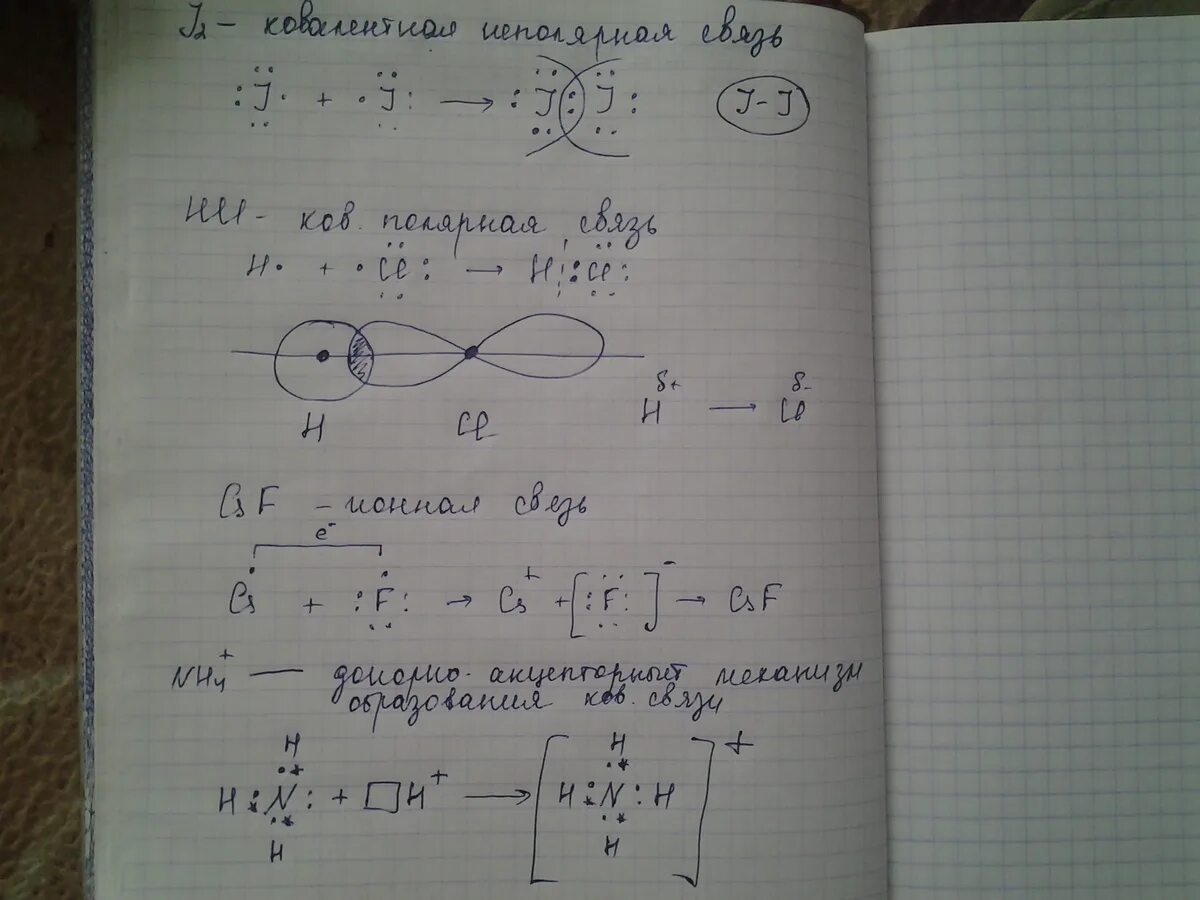 J₂ – ковалентная неполярная связь
:J· + ·J: → :J:J: J–J
HCl – ков. полярная связь
H· + ·Cl: → H:Cl:
H Cl
δ+ δ-
H → Cl
CsF – ионная связь
e⁻
Cs + :F: → Cs⁺ + [:F:]⁻ → CsF
NH₄⁺ — донорно-акцепторный механизм
образования ков. связи
H H
H:N: + □H⁺ → [H:N:H]⁺
H H